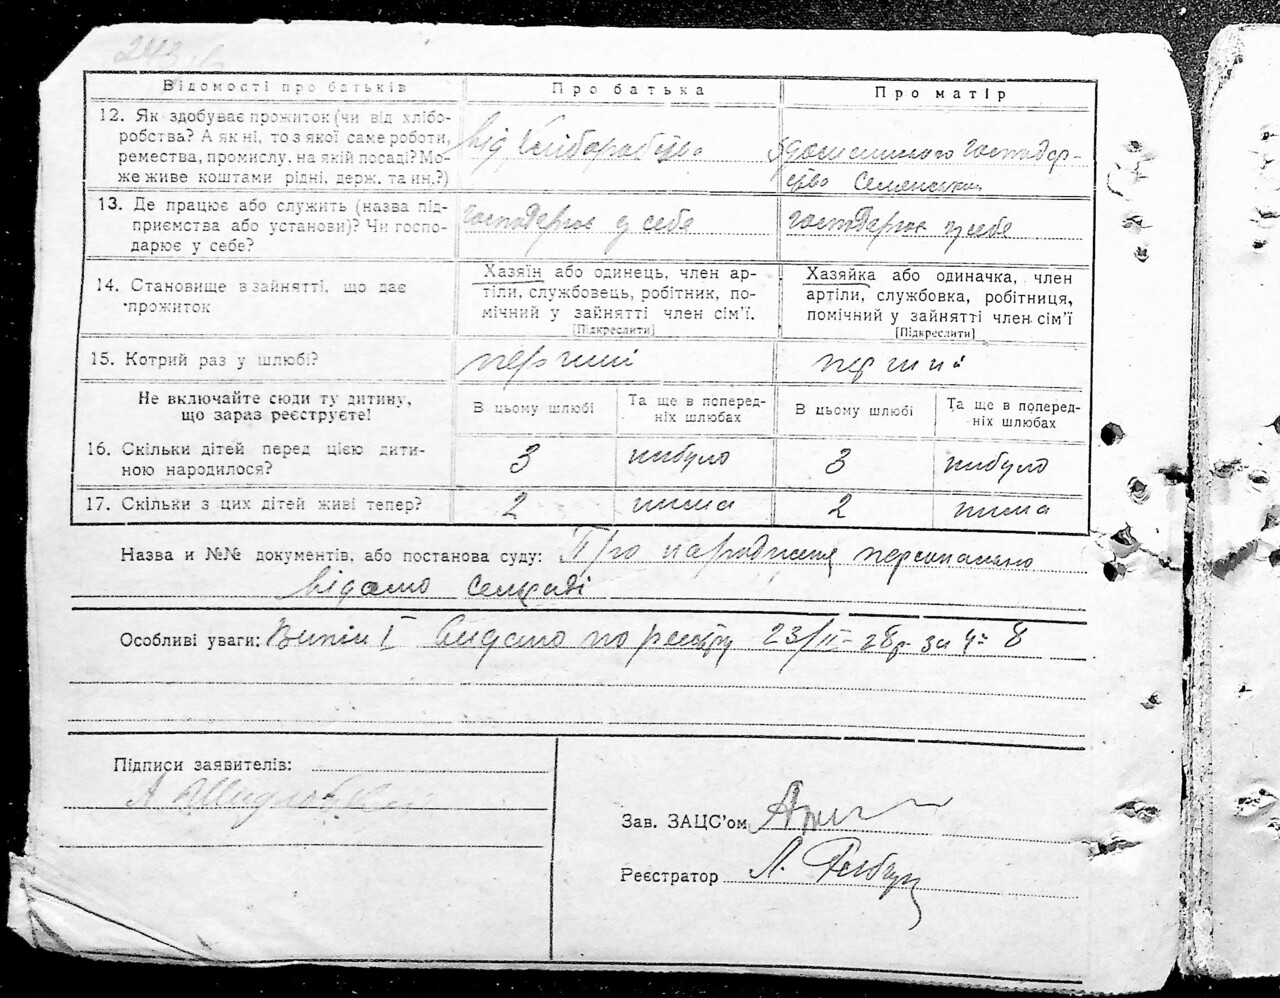 Відомості про батьків
Про батька
Про матір
12. Як здобуває прожиток (чи від хлібо-
робства? А як ні, то з якої саме роботи,
ремества, промислу, на якій посаді? Мо-
же живе коштами рідні, держ. та ин.?)
від хліборобства
домашнього господар-
ство Селянська
13. Де працює або служить (назва під-
приємства або установи)? Чи госпо-
дарює у себе?
господарює у себе
господарює у себе
14. Становище в зайнятті, що дає
прожиток
Хазяїн або одинець, член ар-
тіли, службовець, робітник, по-
мічний у зайнятті член сім’ї.
[Підкреслити]
Хазяйка або одиначка, член
артіли, службовка, робітниця,
помічний у зайнятті член сім’ї
[Підкреслити]
15. Котрий раз у шлюбі?
перший
перший
Не включайте сюди ту дитину,
що зараз реєструєте!
В цьому шлюбі
Та ще в поперед-
ніх шлюбах
В цьому шлюбі
Та ще в поперед-
ніх шлюбах
16. Скільки дітей перед цією дити-
ною народилося?
3
небуло
3
небуло
17. Скільки з цих дітей живі тепер?
2
нема
2
нема
Назва и №№ документів, або постанова суду: Про народження персонально
відомо Сельраді
Особливі уваги: Видано по реєстру 23/II-28р за № 8
Підписи заявителів:
Зав. ЗАЦС’ом
Реєстратор Л.